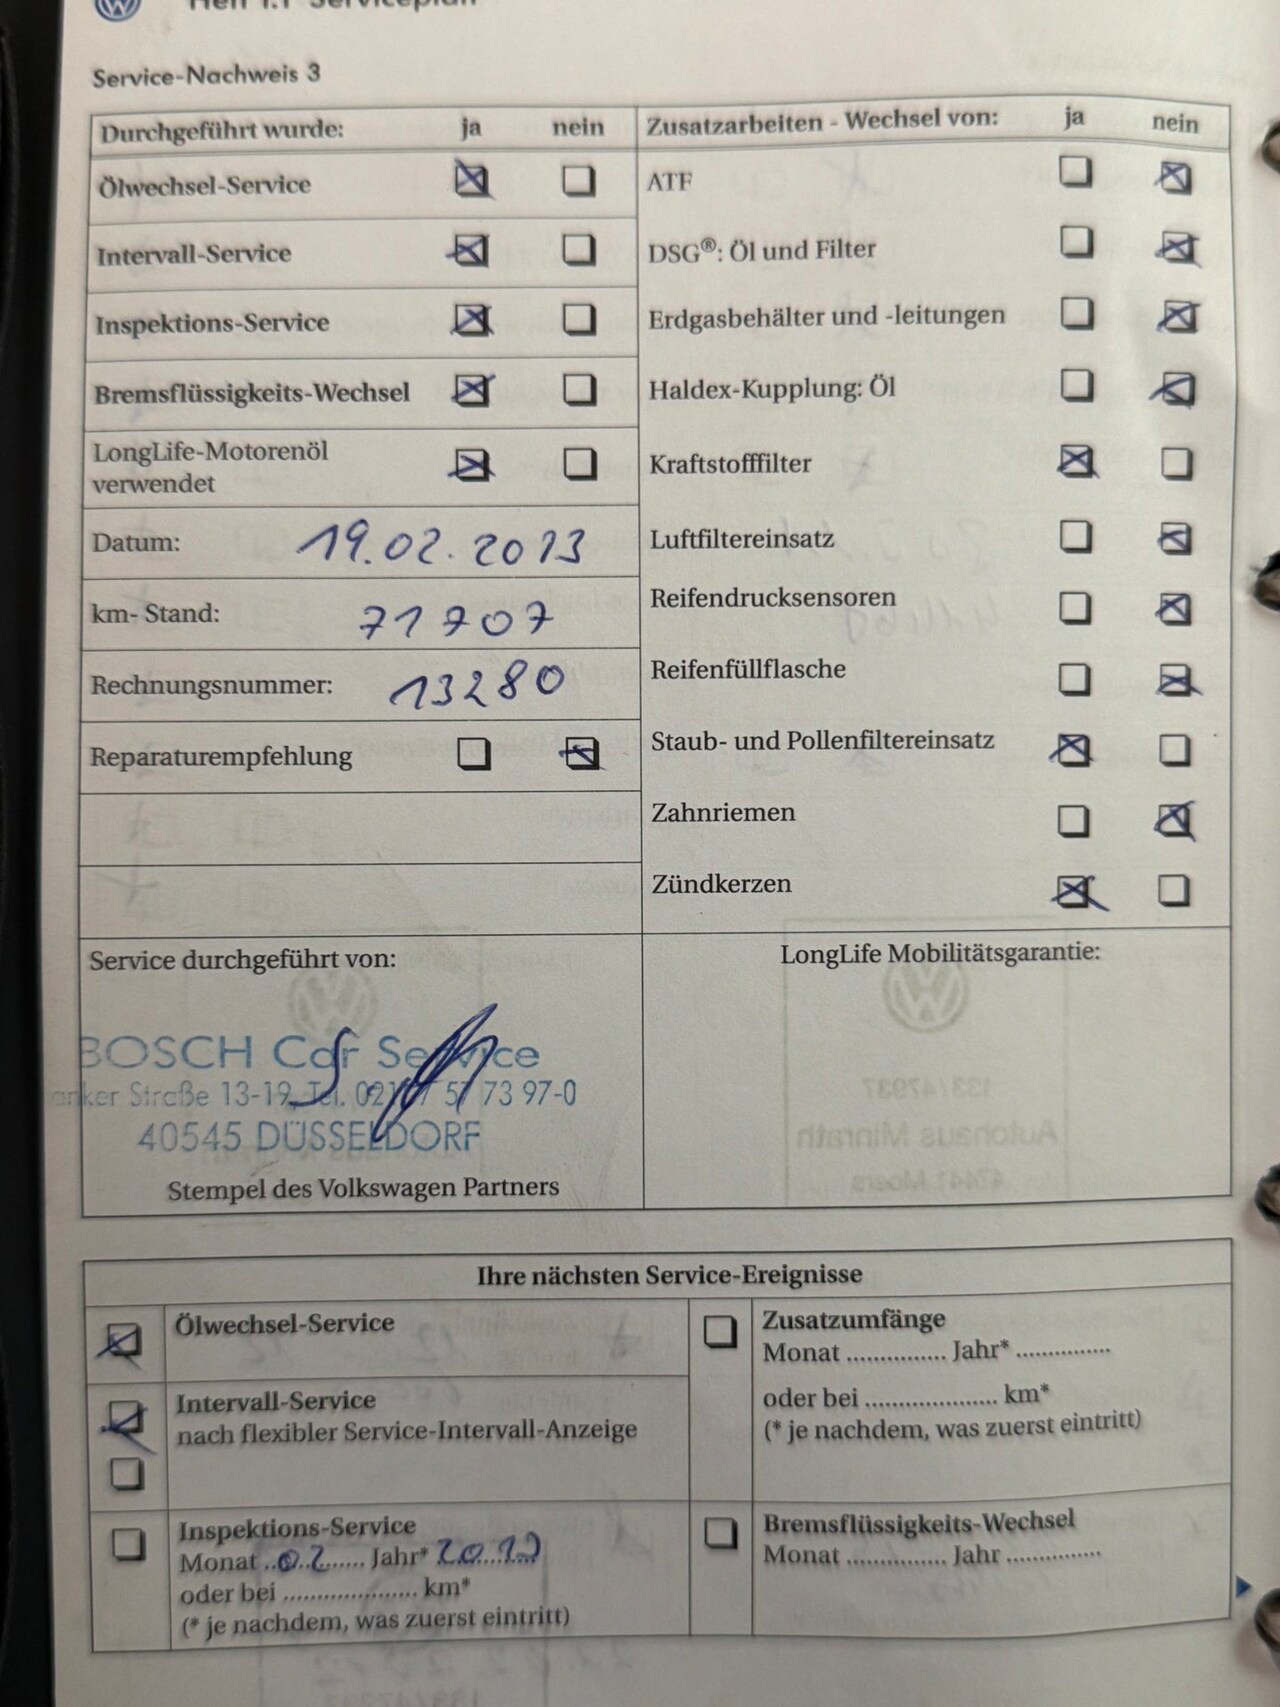 Heft 1.1 Serviceplan
Service-Nachweis 3
Durchgeführt wurde: ja nein
Ölwechsel-Service
Intervall-Service
Inspektions-Service
Bremsflüssigkeits-Wechsel
LongLife-Motorenöl
verwendet
Datum: 19.02.2013
km- Stand: 71707
Rechnungsnummer: 13280
Reparaturempfehlung
Zusatzarbeiten - Wechsel von: ja nein
ATF
DSG®: Öl und Filter
Erdgasbehälter und -leitungen
Haldex-Kupplung: Öl
Kraftstofffilter
Luftfiltereinsatz
Reifendrucksensoren
Reifenfüllflasche
Staub- und Pollenfiltereinsatz
Zahnriemen
Zündkerzen
Service durchgeführt von:
BOSCH Car Service
Straße 13-19, Tel. 73 97-0
40545 DÜSSELDORF
Stempel des Volkswagen Partners
LongLife Mobilitätsgarantie:
133/47937
Autohaus Minrath
47441 Moers
Ihre nächsten Service-Ereignisse
Ölwechsel-Service
Intervall-Service
nach flexibler Service-Intervall-Anzeige
Inspektions-Service
Monat ..02...... Jahr*
oder bei .................... km*
(* je nachdem, was zuerst eintritt)
Zusatzumfänge
Monat ............... Jahr* ...............
oder bei .................... km*
(* je nachdem, was zuerst eintritt)
Bremsflüssigkeits-Wechsel
Monat ............... Jahr ...............